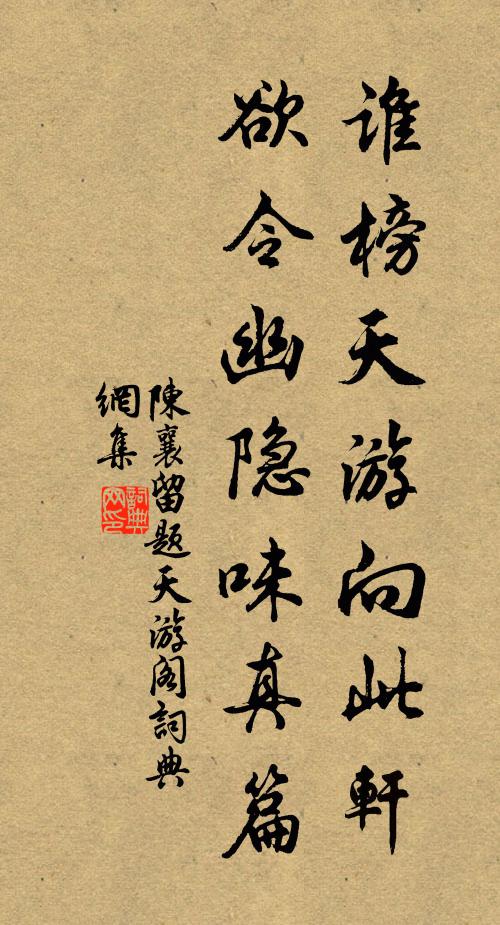 谁榜天游向此軒
欲令幽隐味真篇
陳襄留题天游阁詞典
網集
詞典网印